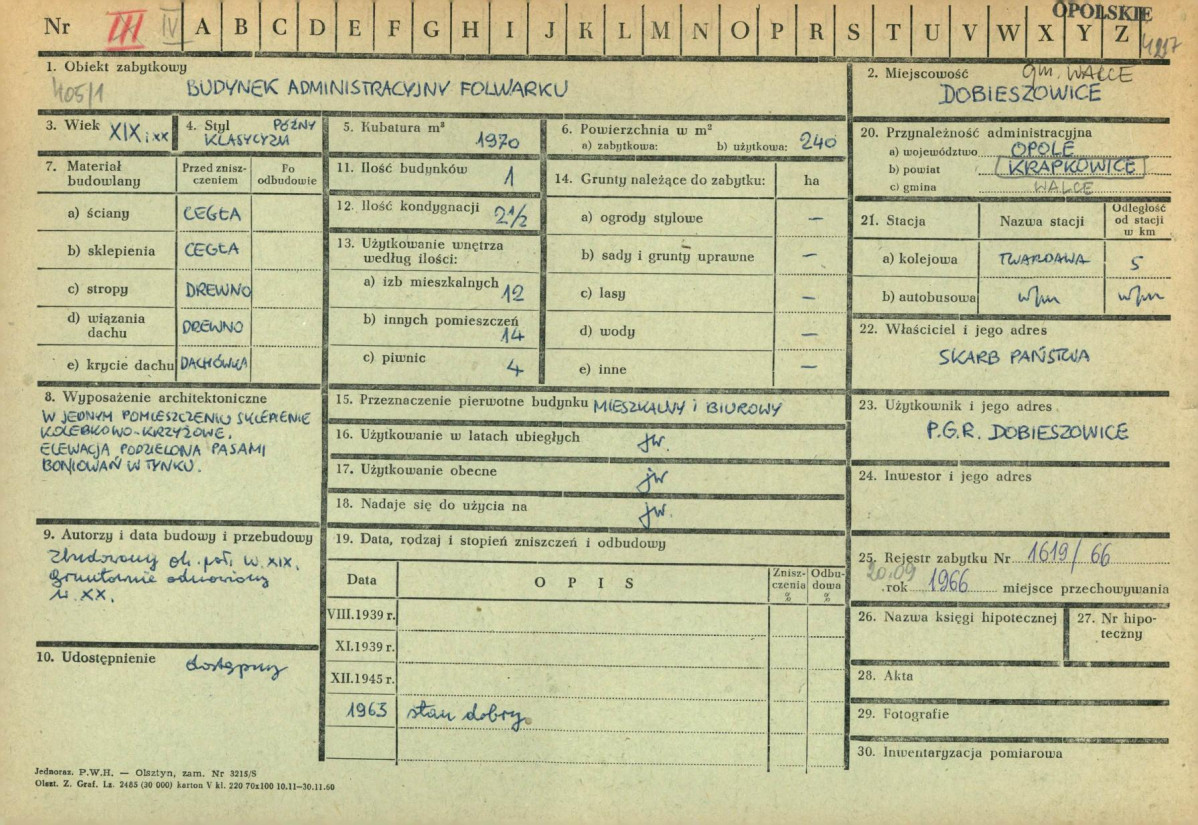 OPOLSKIE
Nr III IV A B C D E F G H I J K L M N O P R S T U V W X Y Z 4217
1. Obiekt zabytkowy
405/1 BUDYNEK ADMINISTRACYJNY FOLWARKU
2. Miejscowość gm. WALCE
DOBIESZOWICE
3. Wiek XIX i XX
4. Styl PÓŹNY
KLASYCYZM
5. Kubatura m³
1970
6. Powierzchnia w m²
a) zabytkowa: b) użytkowa: 240
7. Materiał budowlany
Przed zniszczeniem
Po odbudowie
a) ściany CEGŁA
b) sklepienia CEGŁA
c) stropy DREWNO
d) wiązania dachu DREWNO
e) krycie dachu DACHÓWKA
8. Wyposażenie architektoniczne
W JEDNYM POMIESZCZENIU SKLEPIENIE
KOLEBKOWO-KRZYŻOWE.
ELEWACJA PODZIELONA PASAMI
BONIOWAŃ W TYNKU.
9. Autorzy i data budowy i przebudowy
Zbudowany ok. poł. w. XIX.
gruntownie odnowiony
w. XX.
10. Udostępnienie dostępny
11. Ilość budynków 1
12. Ilość kondygnacji 2½
13. Użytkowanie wnętrza
według ilości:
a) izb mieszkalnych 12
b) innych pomieszczeń 14
c) piwnic 4
14. Grunty należące do zabytku: ha
a) ogrody stylowe –
b) sady i grunty uprawne –
c) lasy –
d) wody –
e) inne –
15. Przeznaczenie pierwotne budynku MIESZKALNY i BIUROWY
16. Użytkowanie w latach ubiegłych jw.
17. Użytkowanie obecne jw
18. Nadaje się do użycia na jw.
19. Data, rodzaj i stopień zniszczeń i odbudowy
Data OPIS Zniszczenia % Odbudowa %
VIII.1939 r.
XI.1939 r.
XII.1945 r.
1963 stan dobry.
20. Przynależność administracyjna
a) województwo OPOLE
b) powiat KRAPKOWICE
c) gmina WALCE
21. Stacja Nazwa stacji Odległość od stacji w km
a) kolejowa TWARDAWA 5
b) autobusowa w/m w/m
22. Właściciel i jego adres
SKARB PAŃSTWA
23. Użytkownik i jego adres
P.G.R. DOBIESZOWICE
24. Inwestor i jego adres
25. Rejestr zabytku Nr 1619/66
20.09
rok 1966 miejsce przechowywania
26. Nazwa księgi hipotecznej
27. Nr hipoteczny
28. Akta
29. Fotografie
30. Inwentaryzacja pomiarowa
Jednoraz. P.W.H. — Olsztyn, zam. Nr 3215/S
Olszt. Z. Graf. Lz. 2485 (30 000) karton V kl. 220 70x100 10.11-30.11.60